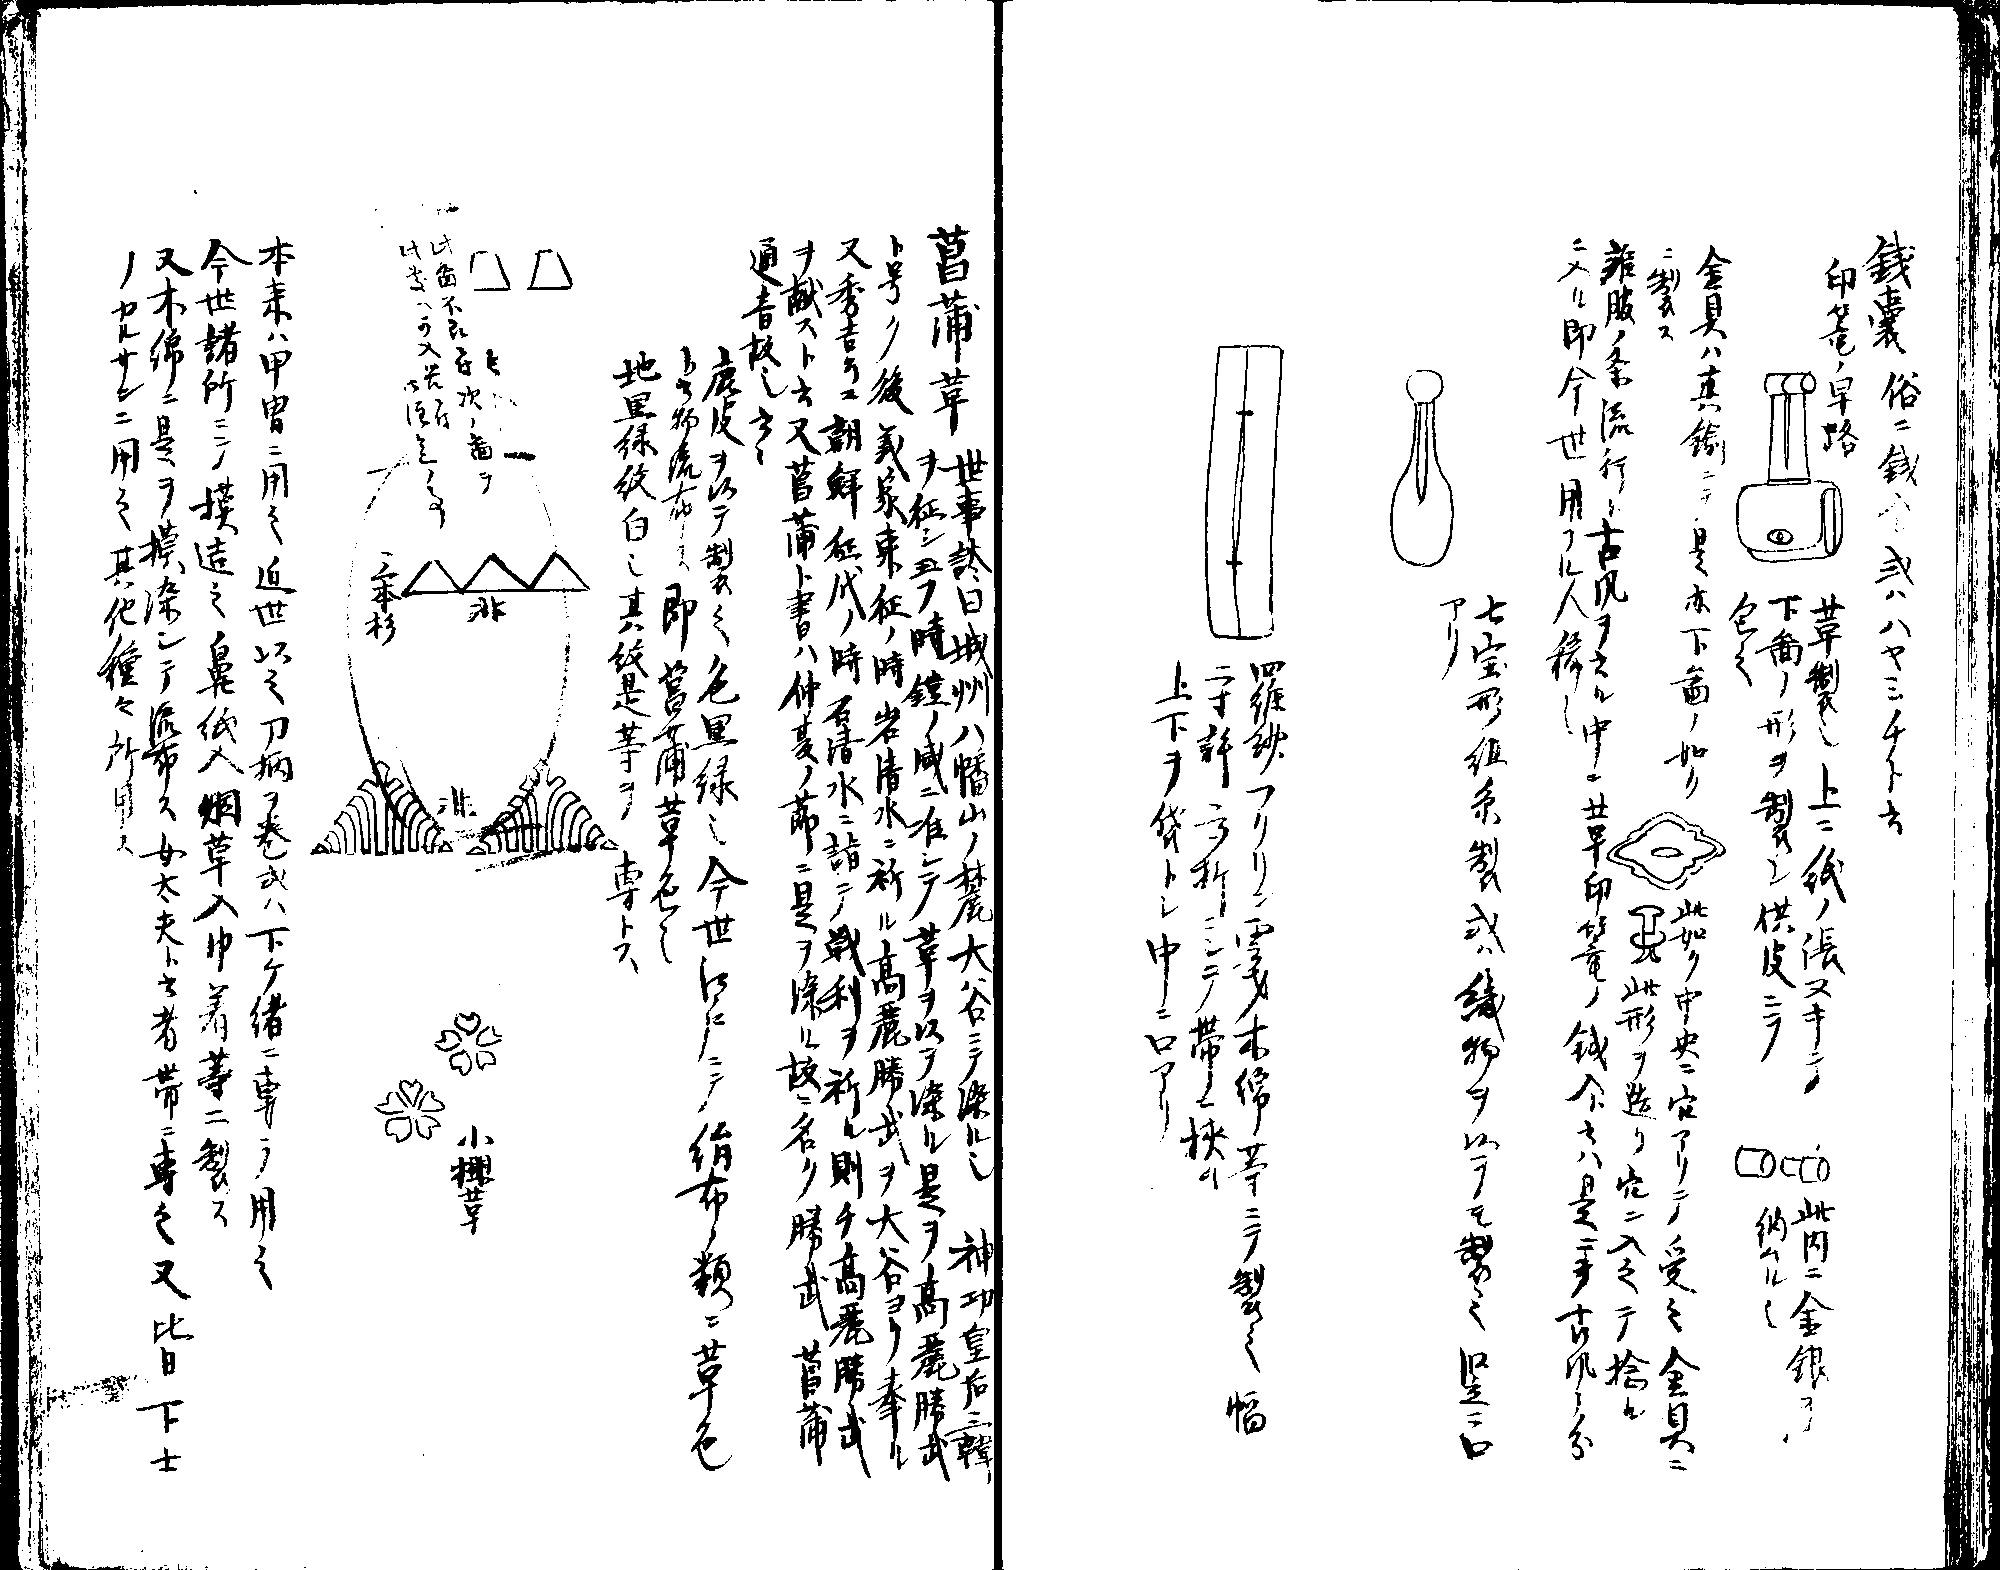 銭嚢 俗ニ銭入或ハハヤミチト云
印篭ノ早路
革製也上ニ紙ノ張ヌキニテ
下図ノ形ヲ製シ供皮ニテ
包之
此内ニ金銀ヲ
納ルル也
金具ハ真鍮ニテ是亦下図ノ如ク
ニ製ス
此如ク中央ニ穴アリテ受之金具ニ
此形ヲ造リ穴ニ入之テ捻ル
雑服ノ条流行ト古風ヲ云ル中ニ革早印篭ノ銭入ト云ハ是ニテ古風ノ分
ニ入ル即今世用フル人稀也
七宝形組糸製或ハ織物ヲ以テモ製之竪ニ口
アリ
木綿等ニテ製之幅
上下ヲ袋トシ中ニ口アリ
菖蒲革 世事談曰城州八幡山ノ麓大谷ニテ染ル也 神功皇后三韓
ヲ征シ玉フ時鎧ノ威ニ准シテ革ヲ以テ染ル是ヲ高麗勝武
ト号ク後義家東征ノ時岩清水ニ祈ル高麗勝武ヲ大谷ヨリ奉ル
又秀吉公朝鮮征伐ノ時石清水ニ詣シテ戦利ヲ祈ル則チ高麗勝武
ヲ献スト云又菖蒲ト書ハ仲夏ノ節ニ是ヲ染ル故ニ名ク勝武 菖蒲
通音故也云々
鹿皮ヲ以テ製之色黒緑也今世江戸ニテ絹布ノ類ニ革色
ト云物流布ス即菖蒲革色也
地黒緑紋白也其紋是等ヲ 専トス
二本杉
非
非
小桜革
本来ハ甲冑ニ用之近世以之刀柄ヲ巻或ハ下ケ緒ニ専ラ用之
今世諸所ニテ模造之鼻紙入烟草入巾着等ニ製ス
又木綿ニ是ヲ模染シテ流布ス女太夫ト云者帯ニ専之又昔日下士
ノカルサンニ用之其他種々所用ス